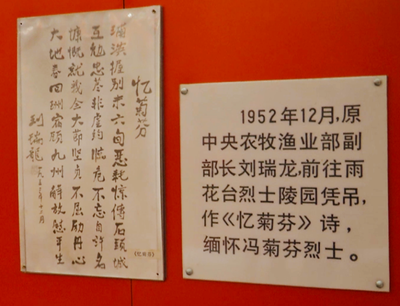 忆菊芬
握别未六旬恶耗惊传石头城
互勉思非虚临危不忘自许名
慷慨就义全大节坚贞不屈励丹心
大地春回酬宿愿九州解放慰平生
刘瑞龙
1952年12月,原
中央农牧渔业部副
部长刘瑞龙,前往雨
花台烈士陵园凭吊,
作《忆菊芬》诗,
缅怀冯菊芬烈士。